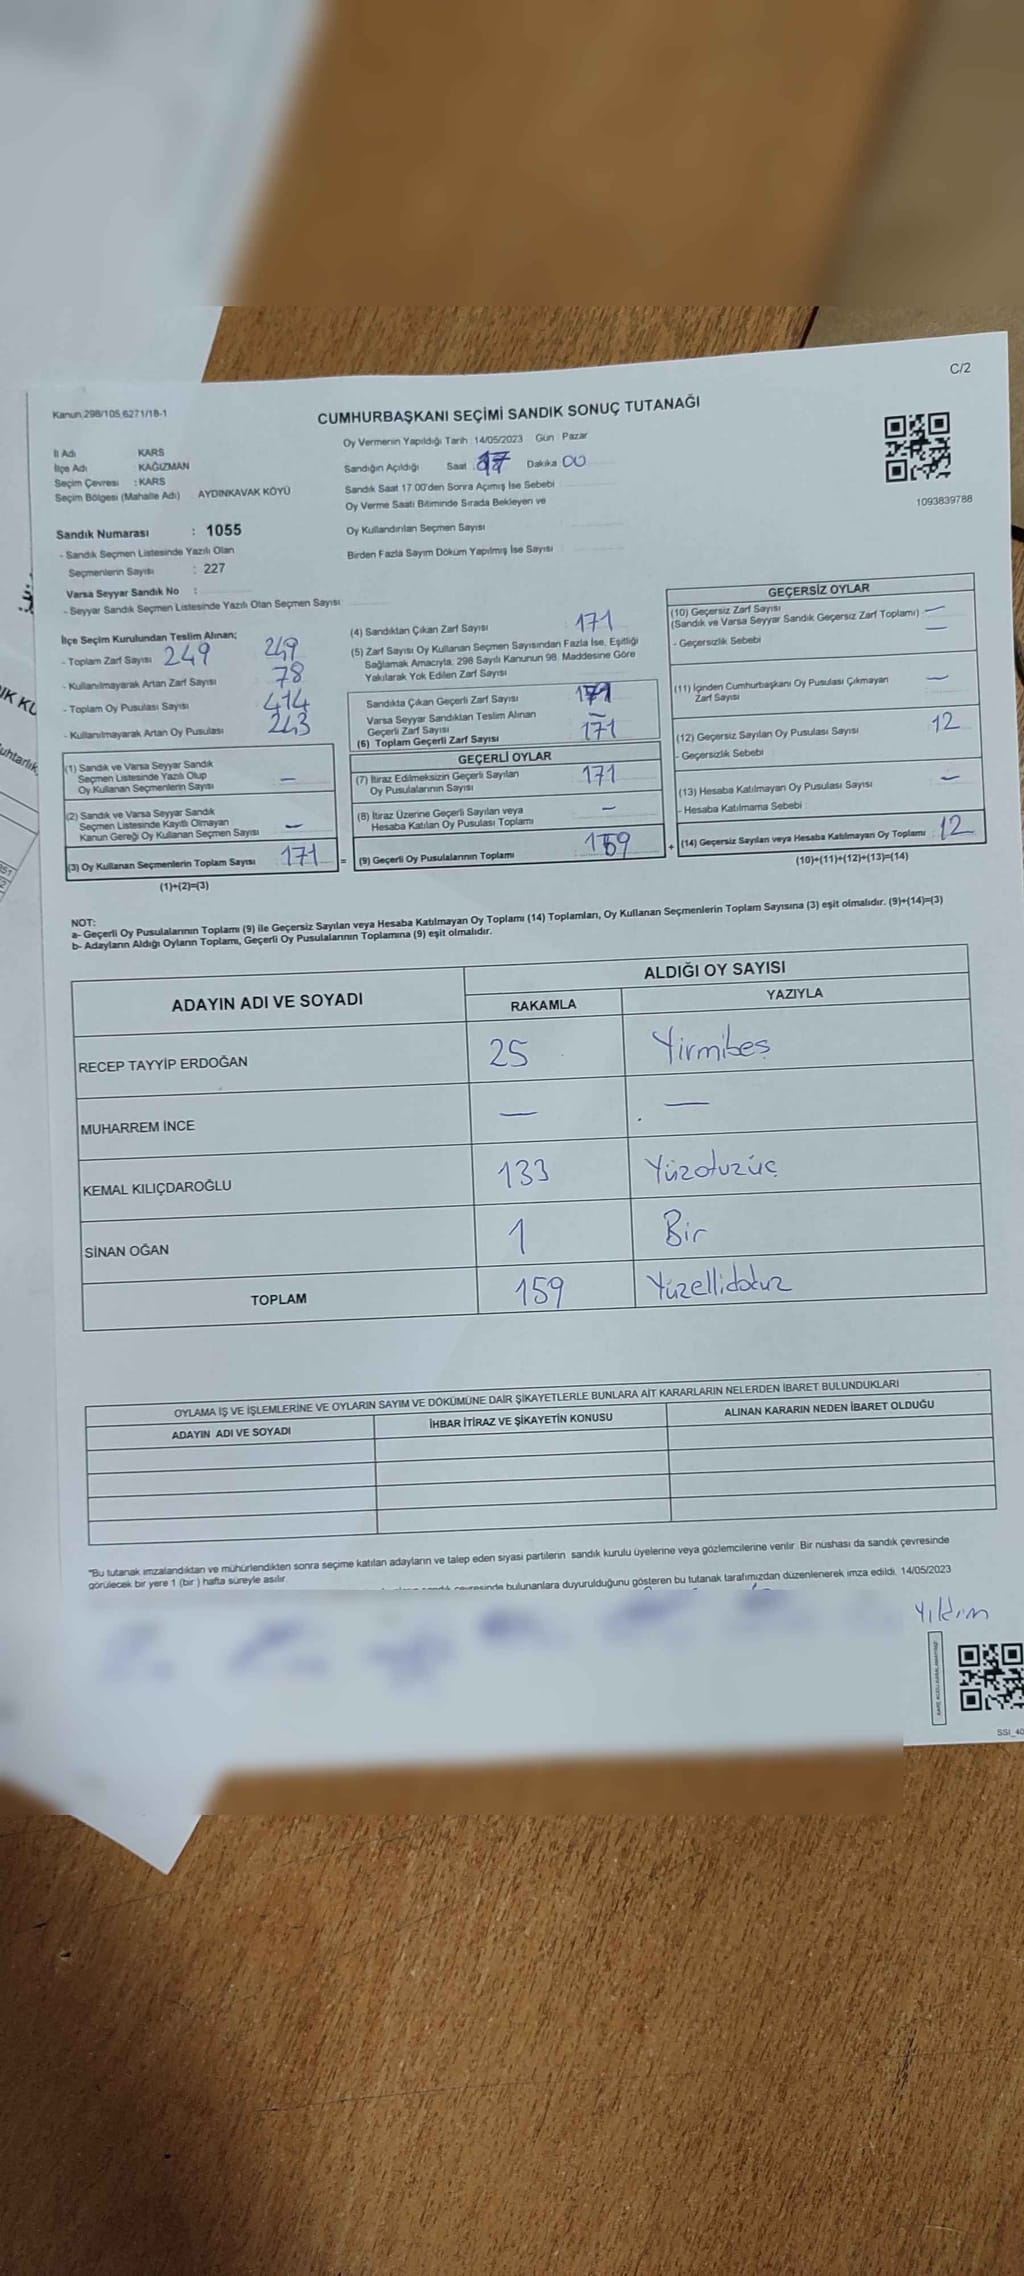 C/2
Kanun:298/105,6271/18-1
CUMHURBAŞKANI SEÇİMİ SANDIK SONUÇ TUTANAĞI
İl Adı KARS
İlçe Adı : KAĞIZMAN
Seçim Çevresi : KARS
Seçim Bölgesi (Mahalle Adı) : AYDINKAVAK KÖYÜ
Oy Vermenin Yapıldığı Tarih : 14/05/2023 Gün : Pazar
Sandığın Açıldığı Saat : 17 Dakika 00
Sandık Saat 17.00'den Sonra Açımış İse Sebebi
Oy Verme Saati Bitiminde Sırada Bekleyen ve
Oy Kullandırılan Seçmen Sayısı
Birden Fazla Sayım Döküm Yapılmış İse Sayısı
1093839788
Sandık Numarası : 1055
- Sandık Seçmen Listesinde Yazılı Olan
Seçmenlerin Sayısı : 227
Varsa Seyyar Sandık No :
- Seyyar Sandık Seçmen Listesinde Yazılı Olan Seçmen Sayısı
İlçe Seçim Kurulundan Teslim Alınan;
- Toplam Zarf Sayısı 249 249
- Kullanılmayarak Artan Zarf Sayısı 78
- Toplam Oy Pusulası Sayısı 414
- Kullanılmayarak Artan Oy Pusulası 243
(1) Sandık ve Varsa Seyyar Sandık
Seçmen Listesinde Yazılı Olup
Oy Kullanan Seçmenlerin Sayısı —
(2) Sandık ve Varsa Seyyar Sandık
Seçmen Listesinde Kayıtlı Olmayan
Kanun Gereği Oy Kullanan Seçmen Sayısı —
(3) Oy Kullanan Seçmenlerin Toplam Sayısı 171 =
(1)+(2)=(3)
(4) Sandıktan Çıkan Zarf Sayısı : 171
(5) Zarf Sayısı Oy Kullanan Seçmen Sayısından Fazla İse, Eşitliği
Sağlamak Amacıyla, 298 Sayılı Kanunun 98. Maddesine Göre
Yakılarak Yok Edilen Zarf Sayısı
Sandıkta Çıkan Geçerli Zarf Sayısı 171
Varsa Seyyar Sandıktan Teslim Alınan
Geçerli Zarf Sayısı —
(6) Toplam Geçerli Zarf Sayısı 171
GEÇERLİ OYLAR
(7) İtiraz Edilmeksizin Geçerli Sayılan
Oy Pusulalarının Sayısı 171
(8) İtiraz Üzerine Geçerli Sayılan veya
Hesaba Katılan Oy Pusulası Toplamı —
(9) Geçerli Oy Pusulalarının Toplamı 159 +
GEÇERSİZ OYLAR
(10) Geçersiz Zarf Sayısı
(Sandık ve Varsa Seyyar Sandık Geçersiz Zarf Toplamı) : —
- Geçersizlik Sebebi —
(11) İçinden Cumhurbaşkanı Oy Pusulası Çıkmayan
Zarf Sayısı —
(12) Geçersiz Sayılan Oy Pusulası Sayısı 12
- Geçersizlik Sebebi
(13) Hesaba Katılmayan Oy Pusulası Sayısı —
- Hesaba Katılmama Sebebi
(14) Geçersiz Sayılan veya Hesaba Katılmayan Oy Toplamı : 12
(10)+(11)+(12)+(13)=(14)
NOT:
a- Geçerli Oy Pusulalarının Toplamı (9) ile Geçersiz Sayılan veya Hesaba Katılmayan Oy Toplamı (14) Toplamları, Oy Kullanan Seçmenlerin Toplam Sayısına (3) eşit olmalıdır. (9)+(14)=(3)
b- Adayların Aldığı Oyların Toplamı, Geçerli Oy Pusulalarının Toplamına (9) eşit olmalıdır.
ADAYIN ADI VE SOYADI ALDIĞI OY SAYISI
RAKAMLA YAZIYLA
RECEP TAYYİP ERDOĞAN 25 Yirmibeş
MUHARREM İNCE — —
KEMAL KILIÇDAROĞLU 133 Yüzotuzüç
SİNAN OĞAN 1 Bir
TOPLAM 159 Yüzellidokuz
OYLAMA İŞ VE İŞLEMLERİNE VE OYLARIN SAYIM VE DÖKÜMÜNE DAİR ŞİKAYETLERLE BUNLARA AİT KARARLARIN NELERDEN İBARET BULUNDUKLARI
ADAYIN ADI VE SOYADI İHBAR İTİRAZ VE ŞİKAYETİN KONUSU ALINAN KARARIN NEDEN İBARET OLDUĞU
"Bu tutanak imzalandıktan ve mühürlendikten sonra seçime katılan adayların ve talep eden siyasi partilerin sandık kurulu üyelerine veya gözlemcilerine verilir. Bir nüshası da sandık çevresinde
görülecek bir yere 1 (bir ) hafta süreyle asılır.
sandık çevresinde bulunanlara duyurulduğunu gösteren bu tutanak tarafımızdan düzenlenerek imza edildi. 14/05/2023
Yıldırım
SSI_40